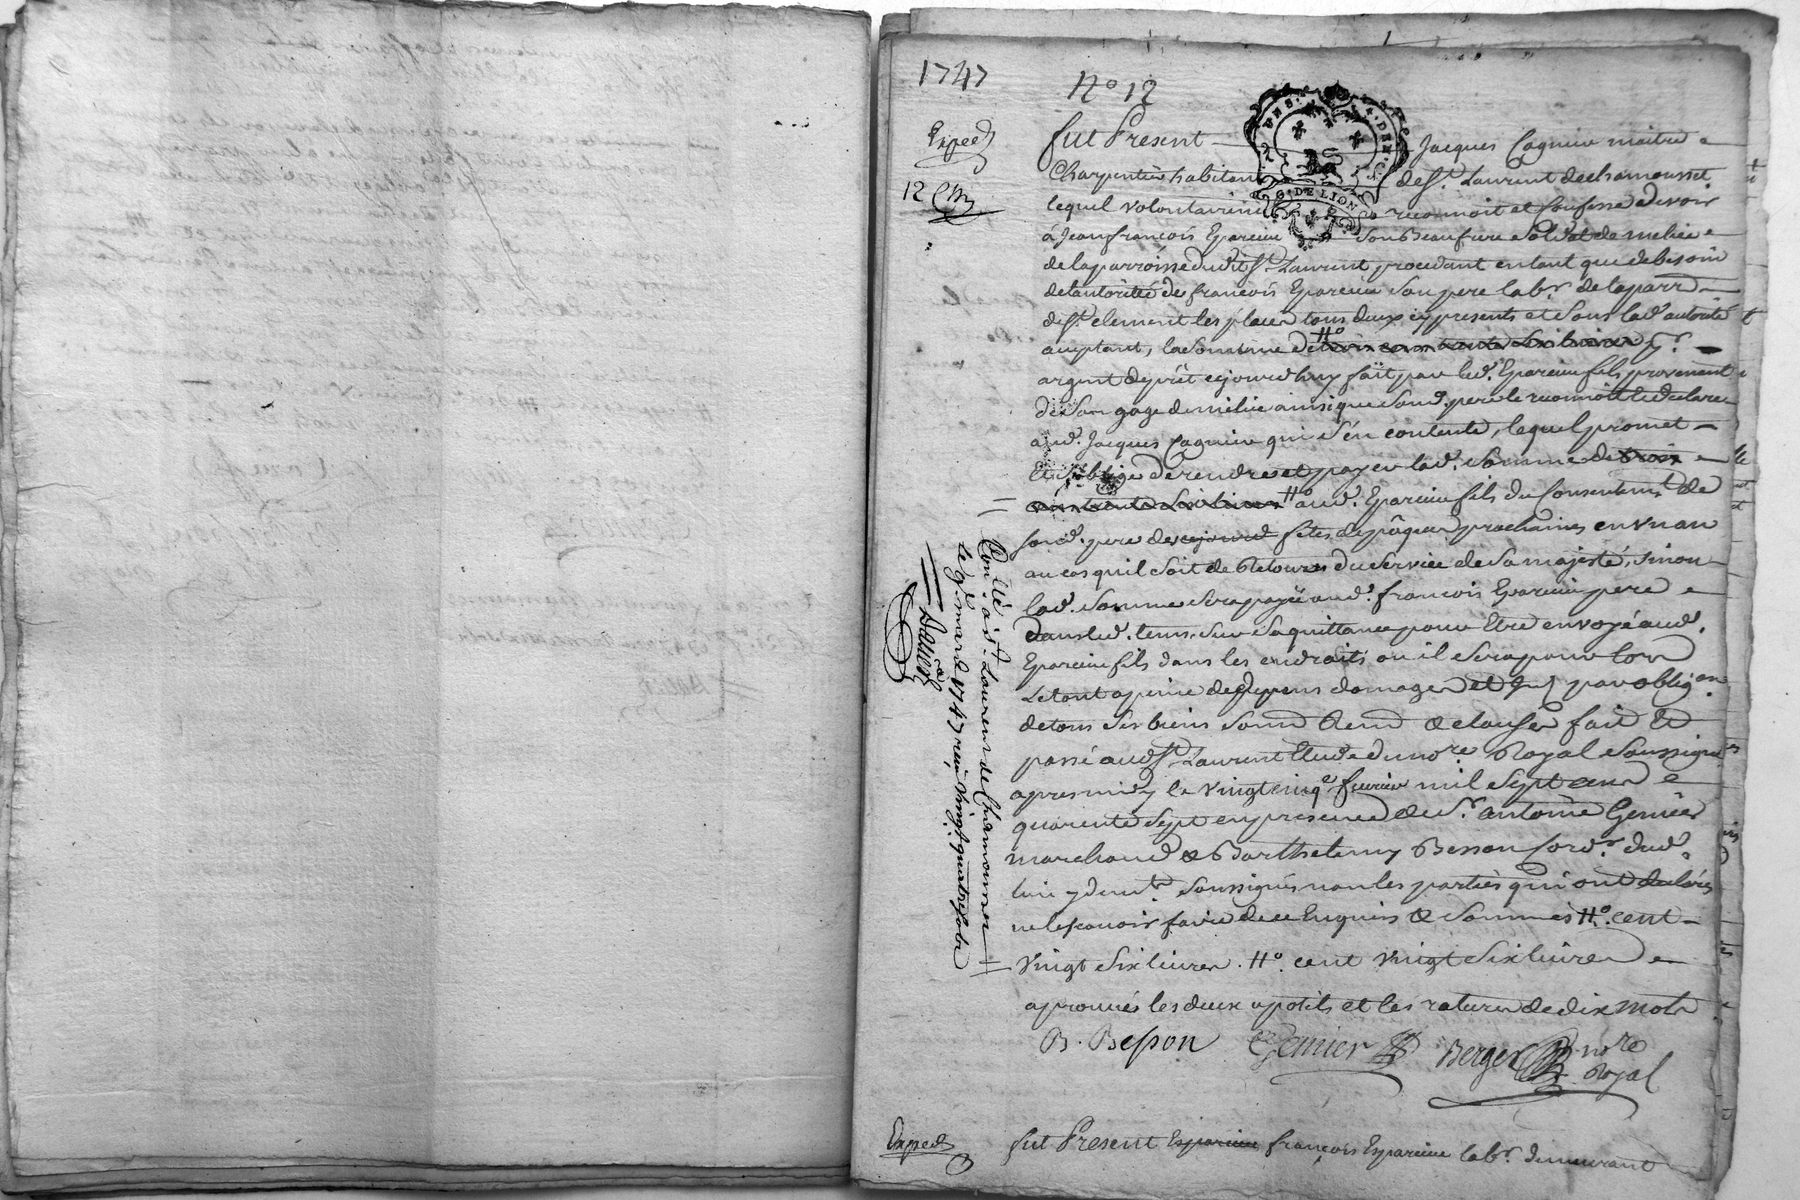 1747
N° 12
Exped
12
GEN. DE LION
fut Present Jacques Cagnieu maitre
Charpentier habitant de St. Laurent dechamousset
lequel volontairement reconnoit et Confesse devoir
à Jean francois Eparcieu son Beaufrere soldat de melice
de la parroisse dudit St. Laurent, procedant en tant que de besoin
de lautoritté de francois Eparcieu son pere labr. de la parr.
de St. clement les places tous deux icy presents et sous lad. autorité
acceptant, la somme de H° trois cens trente six livres
argent de prêt cejourdhuy fait par led. Eparcieu fils provenant
de son gage de milice ainsi que sond. pere le reconnoit et declare
aud. Jacques Cagnieu qui s'en contente, lequel promet
et s'oblige de rendre et payer lad. somme de trois
cens trente six livres H° aud. Eparcieu fils du Consentemt. de
sond. pere de cejourd fetes de pâques prochaines en un an
au cas quil soit de Retour du service de sa majesté, sinon
lad. somme sera payée aud. francois Eparcieu pere
dans led. tems, sur sa quittance pour Etre envoyé aud.
Eparcieu fils dans les endroits ou il sera pour lors
Le tout a peine de depens domages et par obligon
de tous ses biens soum Renon & clauses fait et
passé aud. St. Laurent Etude du nore. Royal soussigné
apres midy le vingt cinqe. fevrier mil sept cens
quarente sept en presence de Sr. antoine Genier
marchand & Barthelemy Besson cordr. dud.
lieu y demt. soussignés non les parties qui ont declarés
ne le scavoir faire de ce Enquis & sommés H° cent
vingt six livres. H° cent vingt six livres
aprouvés les deux apotils et les ratures de dix mots
B. Besson Genier Berger nore
Royal
Conllé a St. Laurent de Chamousset
le 9e. mars 1747 reçu vingt quatre sols
Exped
fut Present Esparcieu francois Esparcieu labr. demeurant